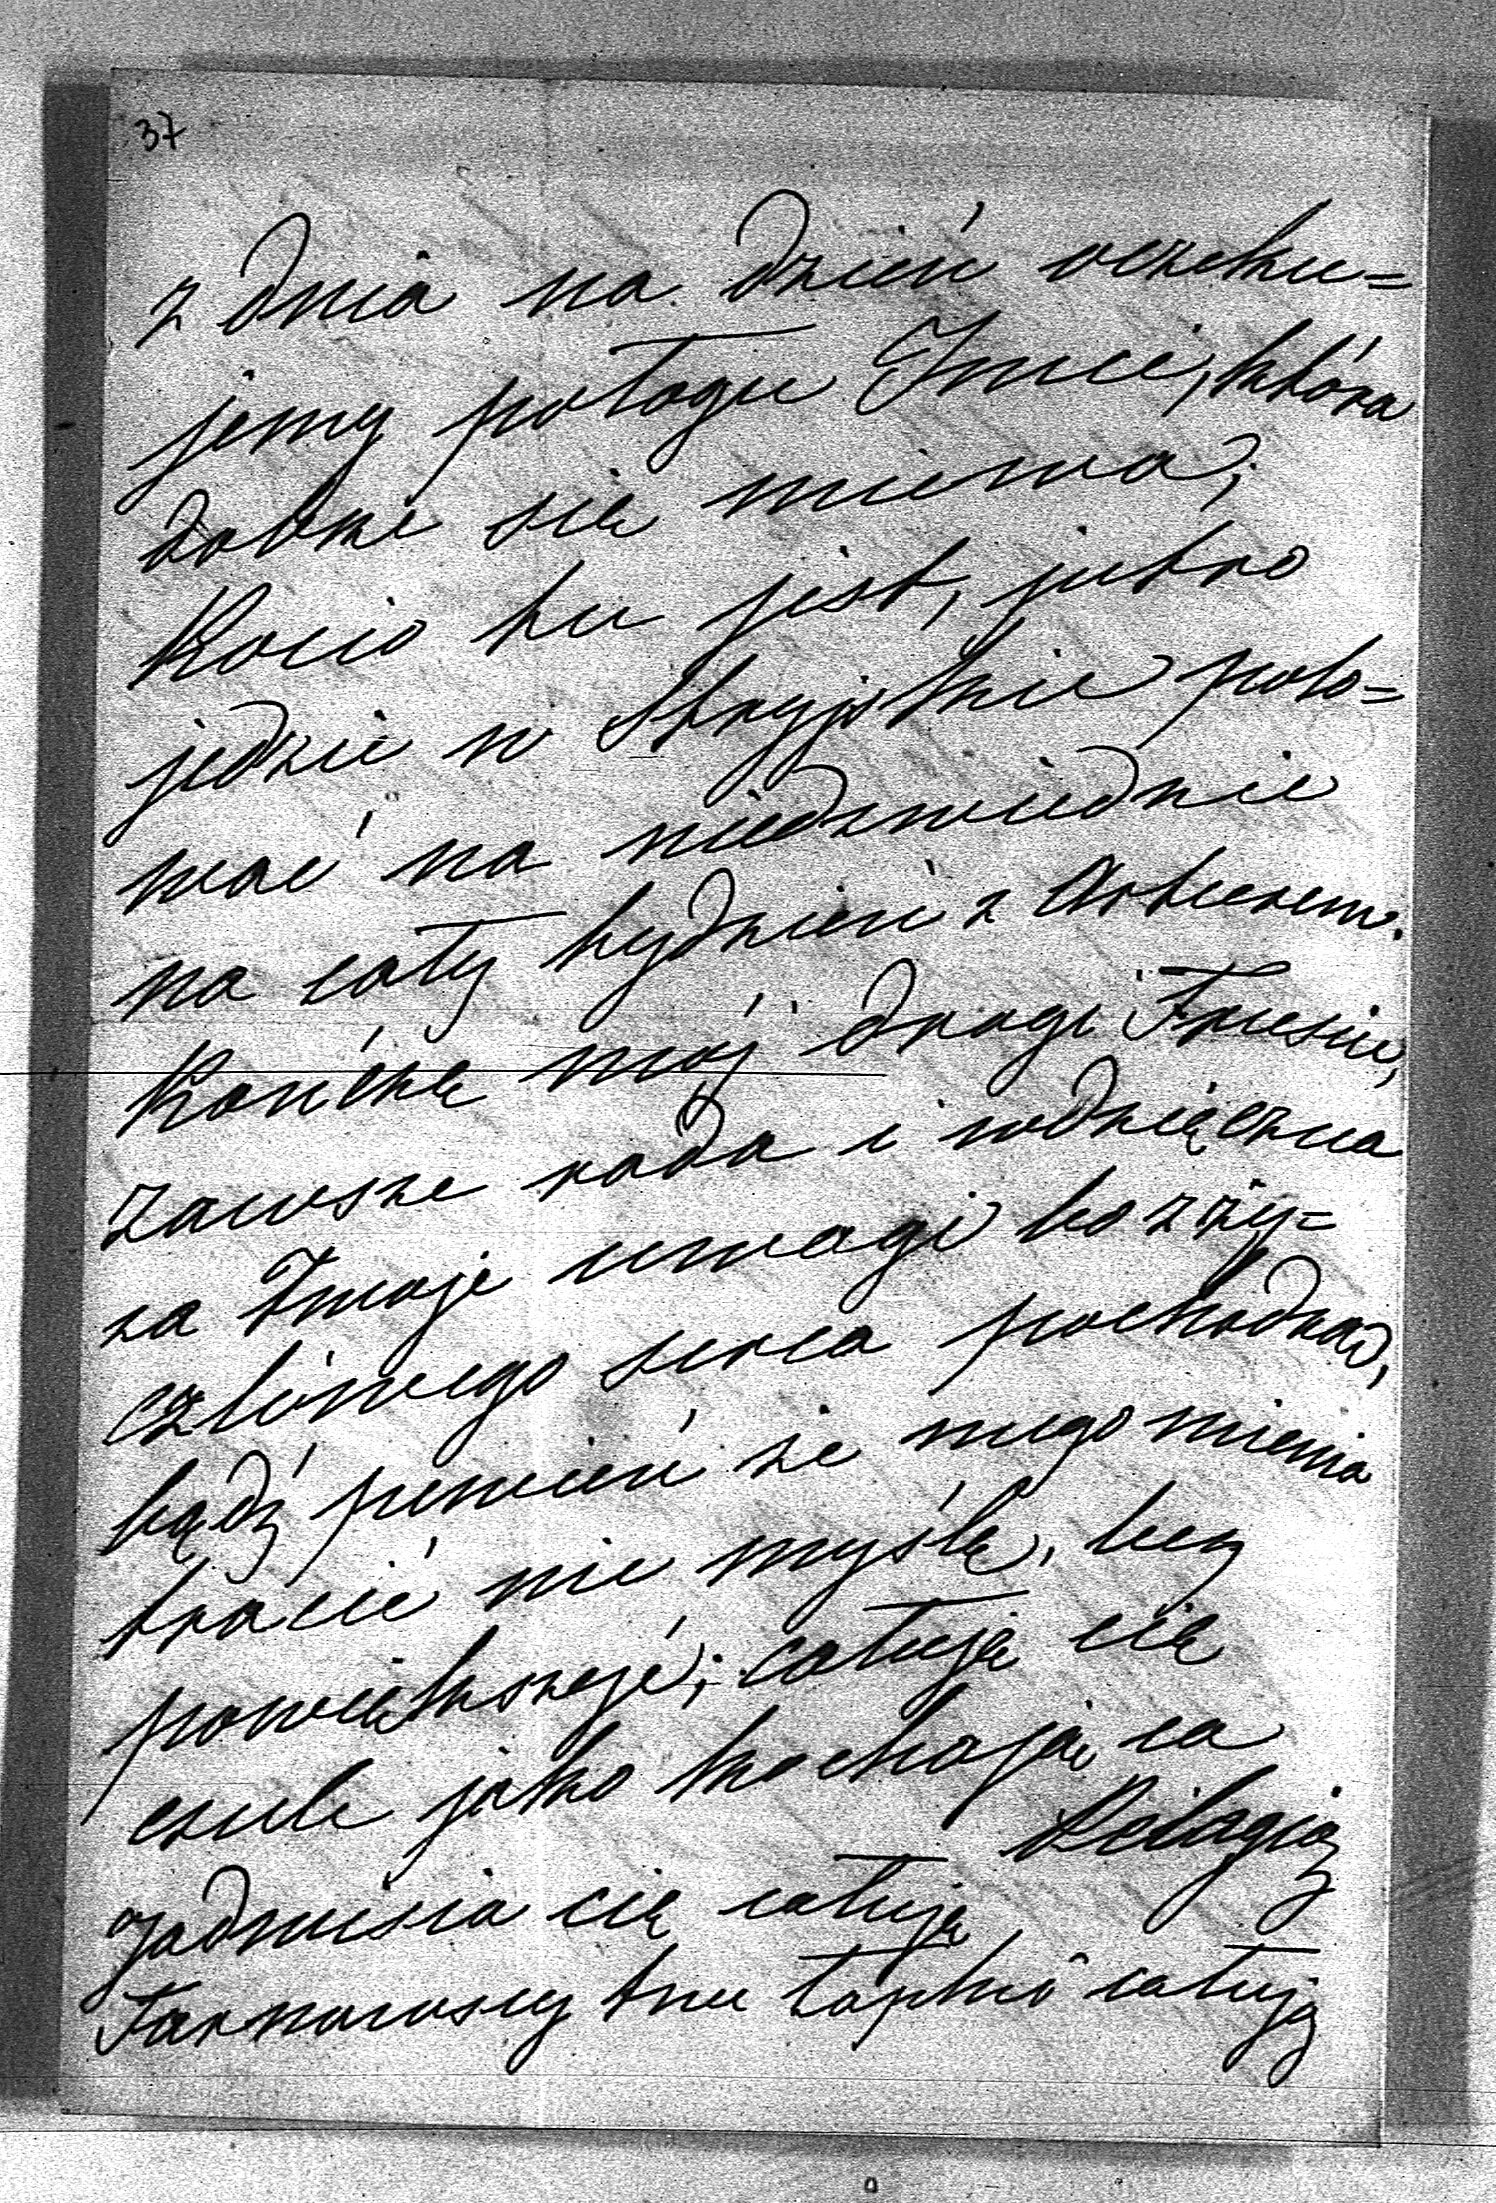 37
z dnia na dzień oczeku=
jemy połogu Imci, która
dobrze się miewa;
Kocio tu jest, jutro
jedzie w Stryjskie polo=
wać na niedzwiednie
na cały tydzień z Arturem.
Kończę mój drogi
zawsze rada i wdzięczna
za Twoje uwagi bo z ży=
czliwego serca pochodzą,
bądź pewien że mego mienia
tracić nie myślę, lecz
powiększyć; całuję cię
czule jako kochająca
Pelagia
Jadwisia cię całuje
Tarnowscy tnu łapki całują